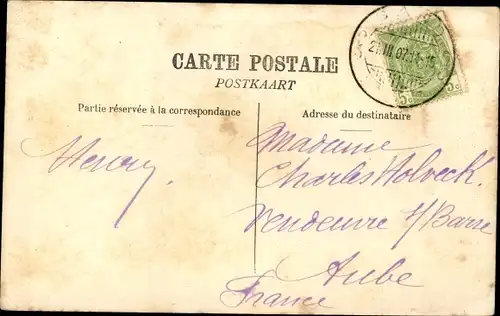 CARTE POSTALE
POSTKAART
Partie réservée à la correspondance
Adresse du destinataire
Henry,
Madame
Charles Holveck
Vendeuvre s/Barse
Aube
France
5c 5c